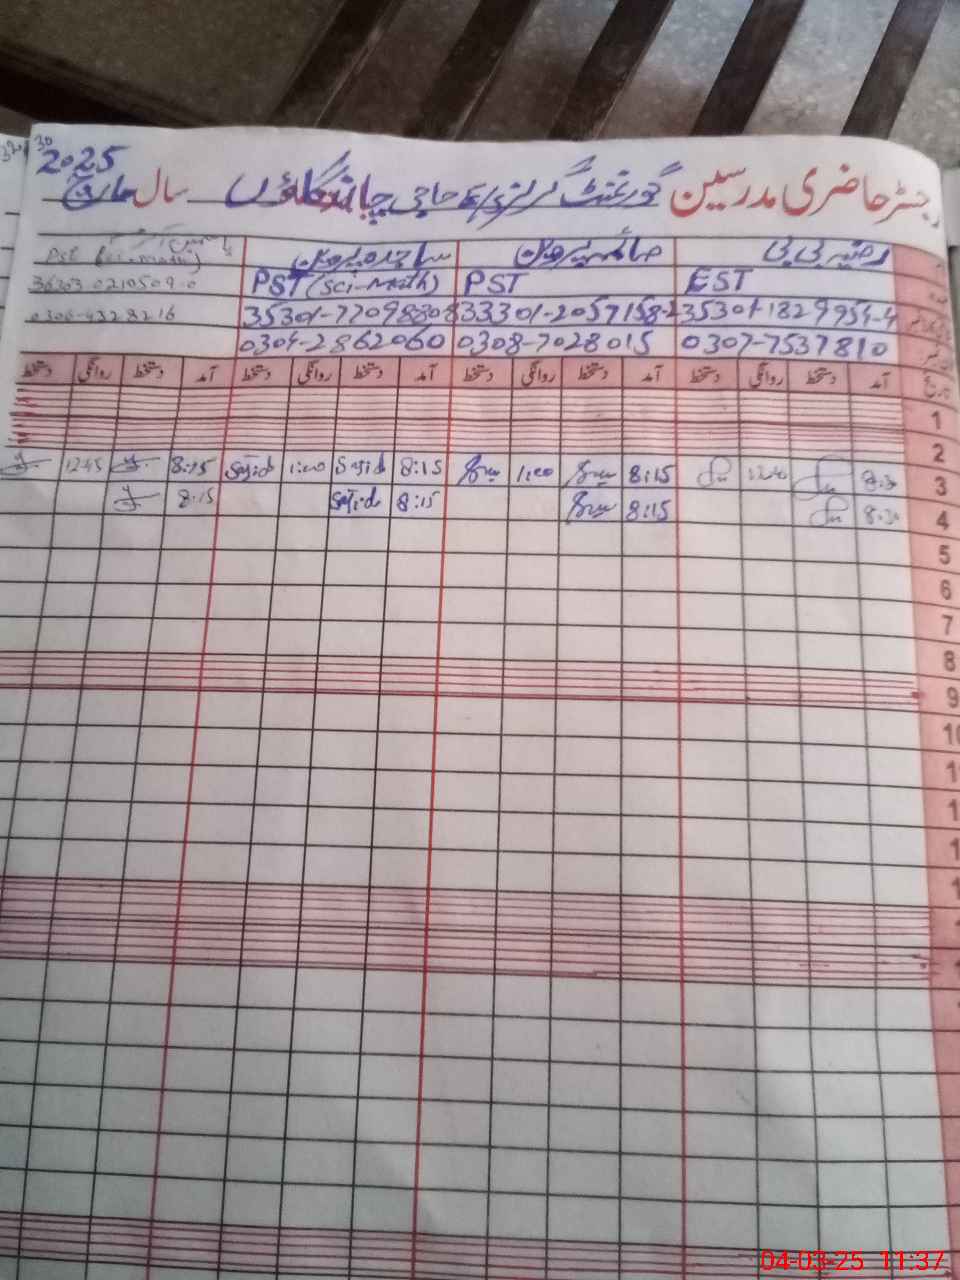 2025
رجسٹر حاضری مدرسین گورنمنٹ گرلز حاجی چاند گاؤں سال مارچ
رضیہ بی بی صائمہ پروین ساجدہ پروین
EST PST PST (Sci-Math) PST (Sci-Math)
35301-1829954-4 33301-2057158-2 35301-7709880-8 36303 0210509-0
0307-7537810 0308-7028015 0304-2862060 0306-4328216
تاریخ آمد دستخط روانگی دستخط آمد دستخط روانگی دستخط آمد دستخط روانگی دستخط آمد دستخط روانگی دستخط
1
2
3 8:30 8:15 1:00 8:15 Sajid 1:00 Sajid 8:15 12:45
4 8:30 8:15 8:15 Sajid 8:15
5
6
7
8
9
10
04-03-25 11:37